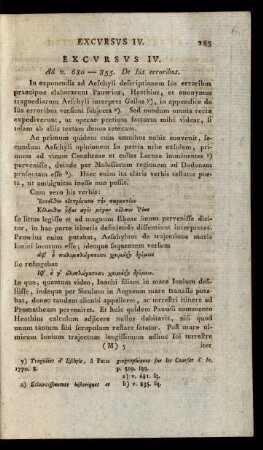 EXCVRSVS IV. 185
EXCVRSVS IV.
Ad v. 680 — 855. De Ius erroribus.
In exponenda ad Aeschyli descriptionem Ius erroribus
praecipue elaborarunt Pauwius, Heathius, et anonymus
tragoediarum Aeschyli interpres Gallus y), in appendice de
Ius erroribus versioni subjecta z). Sed nondum omnia recte
expediverunt, ut operae pretium facturus mihi videar, si
telam ab aliis textam denuo retexam.
Ac primum quidem cum omnibus nobis convenit, se-
cundum Aeschyli opinionem Io patria urbe exsulem, pri-
mum ad vicum Cenchreae et colles Lernae imminentes a)
pervenisse, deinde per Molossicum regionem ad Dodonam
profectam esse b). Haec enim ita claris verbis testatur poe-
ta, ut ambiguitas inesse non possit.
Cum vero his verbis:
Ἐντεῦθεν οἰστρήσασα τὴν παρακτίαν
Κέλευθον ᾖξας πρὸς μέγαν κόλπον Ῥέας
Io sinus
in hac parte itineris definiendo dissentiunt interpretes.
Pauwius enim putabat, Aeschylum de trajectione maris
Ionici locutum esse; ideoque sequentem versum
ἀφ' οὗ παλιμπλάγκτοισι χειμάζῃ δρόμοις
sic refingebat
In quo, quantum video, Inachi filiam in mare Ionium inde-
sinere, indeque per Siculum in Aegaeum mare transilit puta-
bat, donec tandem alicubi appelleret, ac terrestri itinere ad
Prometheum perveniret. Et huic quidem Pauwii commento
Heathius calculum adjicere nullus dubitavit, nisi quod
unum tantum sibi scrupulum restare fatetur. Post mare ni-
mirum Ionium trajectum longissimum adhuc Ioi terrestre
(M) 5 iter
y) Tragédies d'Eschyle, à Paris
1770. 8.
z) Eclaircissemens historiques et
geographiques sur les Courses d' Io,
p. 509. sqq.
a) v. 681. sq.
b) v. 835. sq.